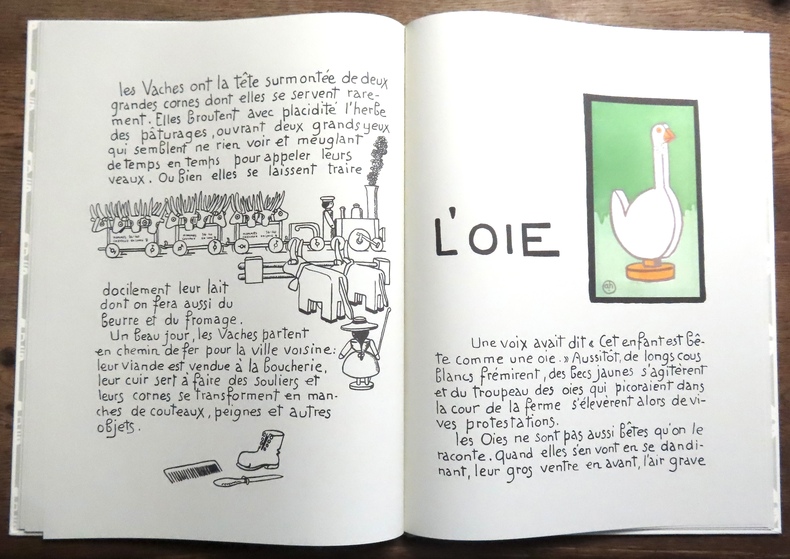 les Vaches ont la tête surmontée de deux
grandes cornes dont elles se servent rare-
ment. Elles broutent avec placidité l'herbe
des pâturages, ouvrant deux grands yeux
qui semblent ne rien voir et meuglant
de temps en temps pour appeler leurs
veaux. Ou bien elles se laissent traire
docilement leur lait
dont on fera aussi du
beurre et du fromage.
Un beau jour, les Vaches partent
en chemin de fer pour la ville voisine:
leur viande est vendue à la boucherie,
leur cuir sert à faire des souliers et
leurs cornes se transforment en man-
ches de couteaux, peignes et autres
objets.
L'OIE
Une voix avait dit « Cet enfant est bê-
te comme une oie. » Aussitôt, de longs cous
blancs frémirent, des becs jaunes s'agitèrent
et du troupeau des oies qui picoraient dans
la cour de la ferme s'élevèrent alors de vi-
ves protestations.
les Oies ne sont pas aussi bêtes qu'on le
raconte. Quand elles s'en vont en se dandi-
nant, leur gros ventre en avant, l'air grave